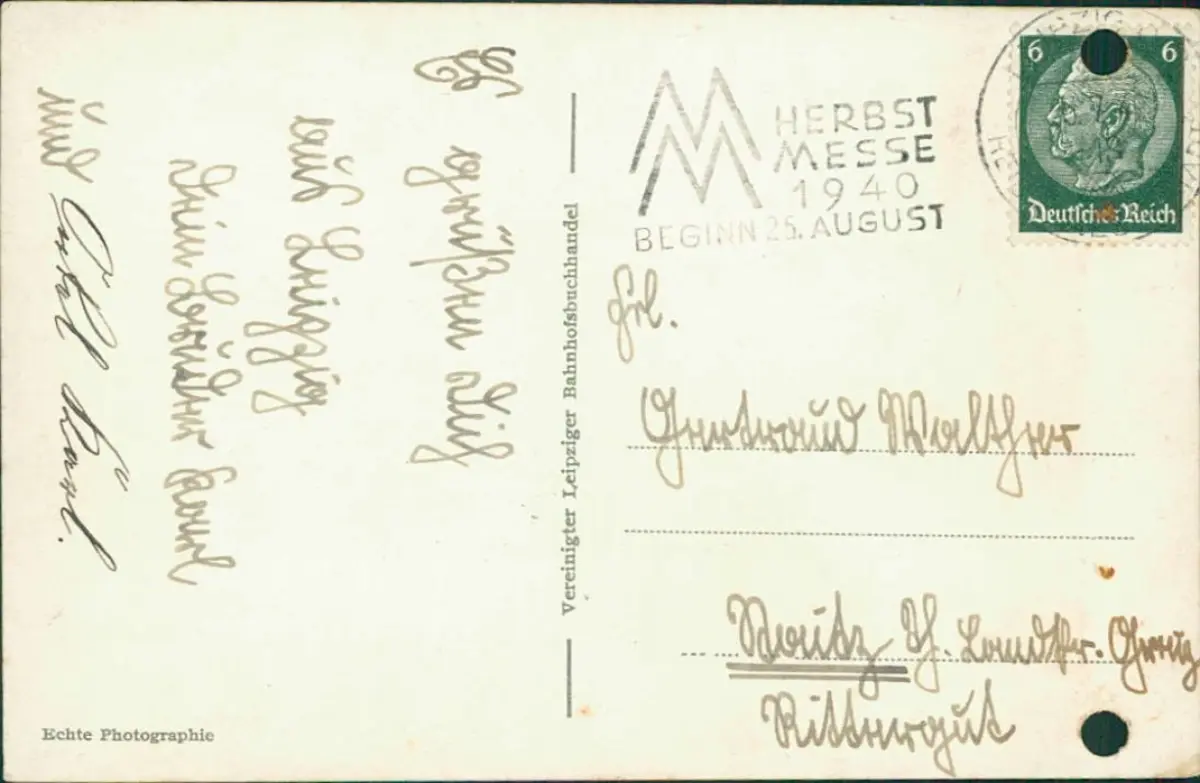 Es
grüßen Dich
aus Leipzig
Dein Bruder
und Onkel Karl.
Echte Photographie
Vereinigter Leipziger Bahnhofsbuchhandel
MM
HERBST
MESSE
1940
BEGINN 25. AUGUST
6 6
Deutsches Reich
Frl.
Gertraud Walther
Th. Landkr. Greiz
Rittergut